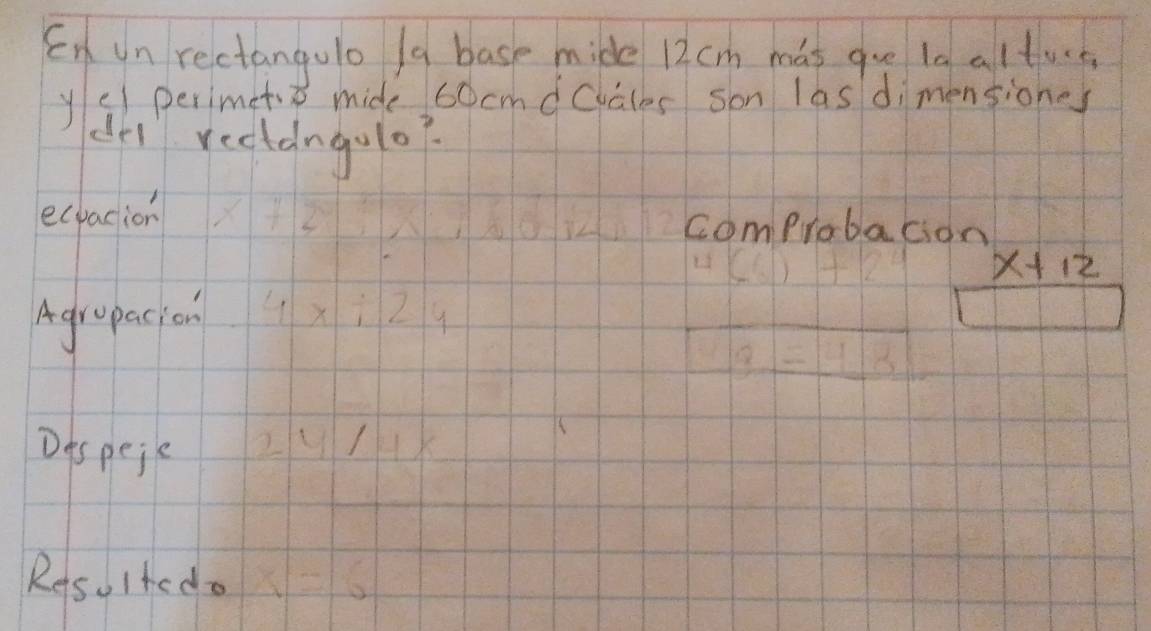 En un rectangulo la base mide 12cm más que la altura
y el perimetro mide 60cm ¿Cuáles son las dimensiones
del rectángulo?
ecuación
Comprobación
4(6) + 24
x+12
Agrupación 4x + 24
48 = 48
Despeje 24/4x
Resultado x = 6